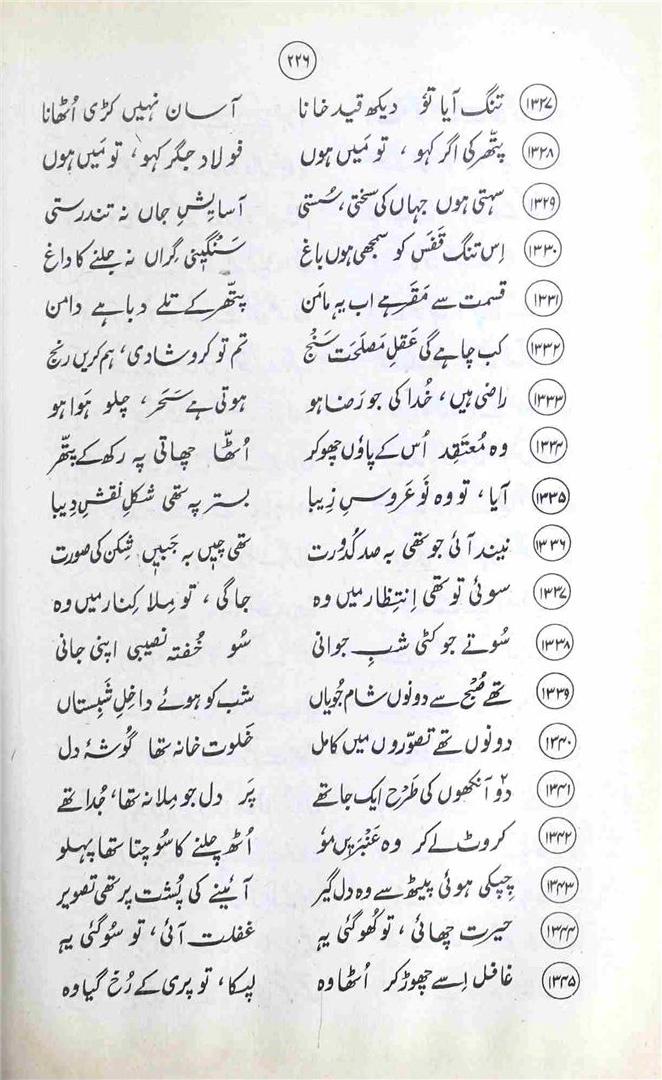 ۲۲۶
۱۳۲۷ تنگ آیا تُو دیکھ قید خانا آسان نہیں کڑی اُٹھانا
۱۳۲۸ پتّھر کی اگر کہو ، تو مَیں ہوں فولاد جگر کہو ، تو مَیں ہوں
۱۳۲۹ سہتی ہوں جہاں کی سختی ، سُستی آسایِشِ جاں نہ تندرستی
۱۳۳۰ اِس تنگ قَفَس کو سمجھی ہوں باغ سَنگینیِ گِراں نہ جلنے کا داغ
۱۳۳۱ قسمت سے مَفَر ہے اب یہ مامَن پتّھر کے تلے دبا ہے دامن
۱۳۳۲ کب چاہے گی عَقلِ مَصلَحَت سَنْج تم تو کرو شادی ، ہم کریں رنج
۱۳۳۳ راضی ہیں ، خُدا کی جو رَضا ہو ہوتی ہے سَحَر ، چلو ہَوا ہو
۱۳۳۴ وہ مُعتَقِد اُس کے پاوٴں چھوکر اُٹّھا چھاتی پہ رکھ کے پتّھر
۱۳۳۵ آیا ، تو وہ نَو عَروسِ زیبا بستر پہ تھی شکلِ نقشِ دِیبا
۱۳۳۶ نیند آئی جو تھی بہ صد کُدورت تھی چِیں بہ جَبیں شِکن کی صورت
۱۳۳۷ سوئی تو تھی اِنتظار میں وہ جاگی ، تو مِلا کِنار میں وہ
۱۳۳۸ سُوتے جو کٹی شبِ جوانی سُو خُفتہ نصیبی اپنی جانی
۱۳۳۹ تھے صُبْح سے دونوں شام جُویاں شب کو ہوئے داخلِ شَبِستاں
۱۳۴۰ دونوں تھے تصوّروں میں کامل خَلوت خانہ تھا گوشۂ دل
۱۳۴۱ دو آنکھوں کی طَرْح ایک جا تھے پَر دل جو مِلا نہ تھا ، جُدا تھے
۱۳۴۲ کروٹ لے کر وہ عَنْبَریں مو اُٹھ چلنے کا سُوچتا تھا پہلو
۱۳۴۳ چِپکی ہوئی پیٹھ سے وہ دل گیر آئینے کی پُشت پر تھی تصویر
۱۳۴۴ حیرت چھائی ، تو کُھو گئی یہ غفلت آئی ، تو سُو گئی یہ
۱۳۴۵ غافل اِسے چھوڑ کر اُٹھا وہ لپکا ، تو پری کے رُخ گیا وہ